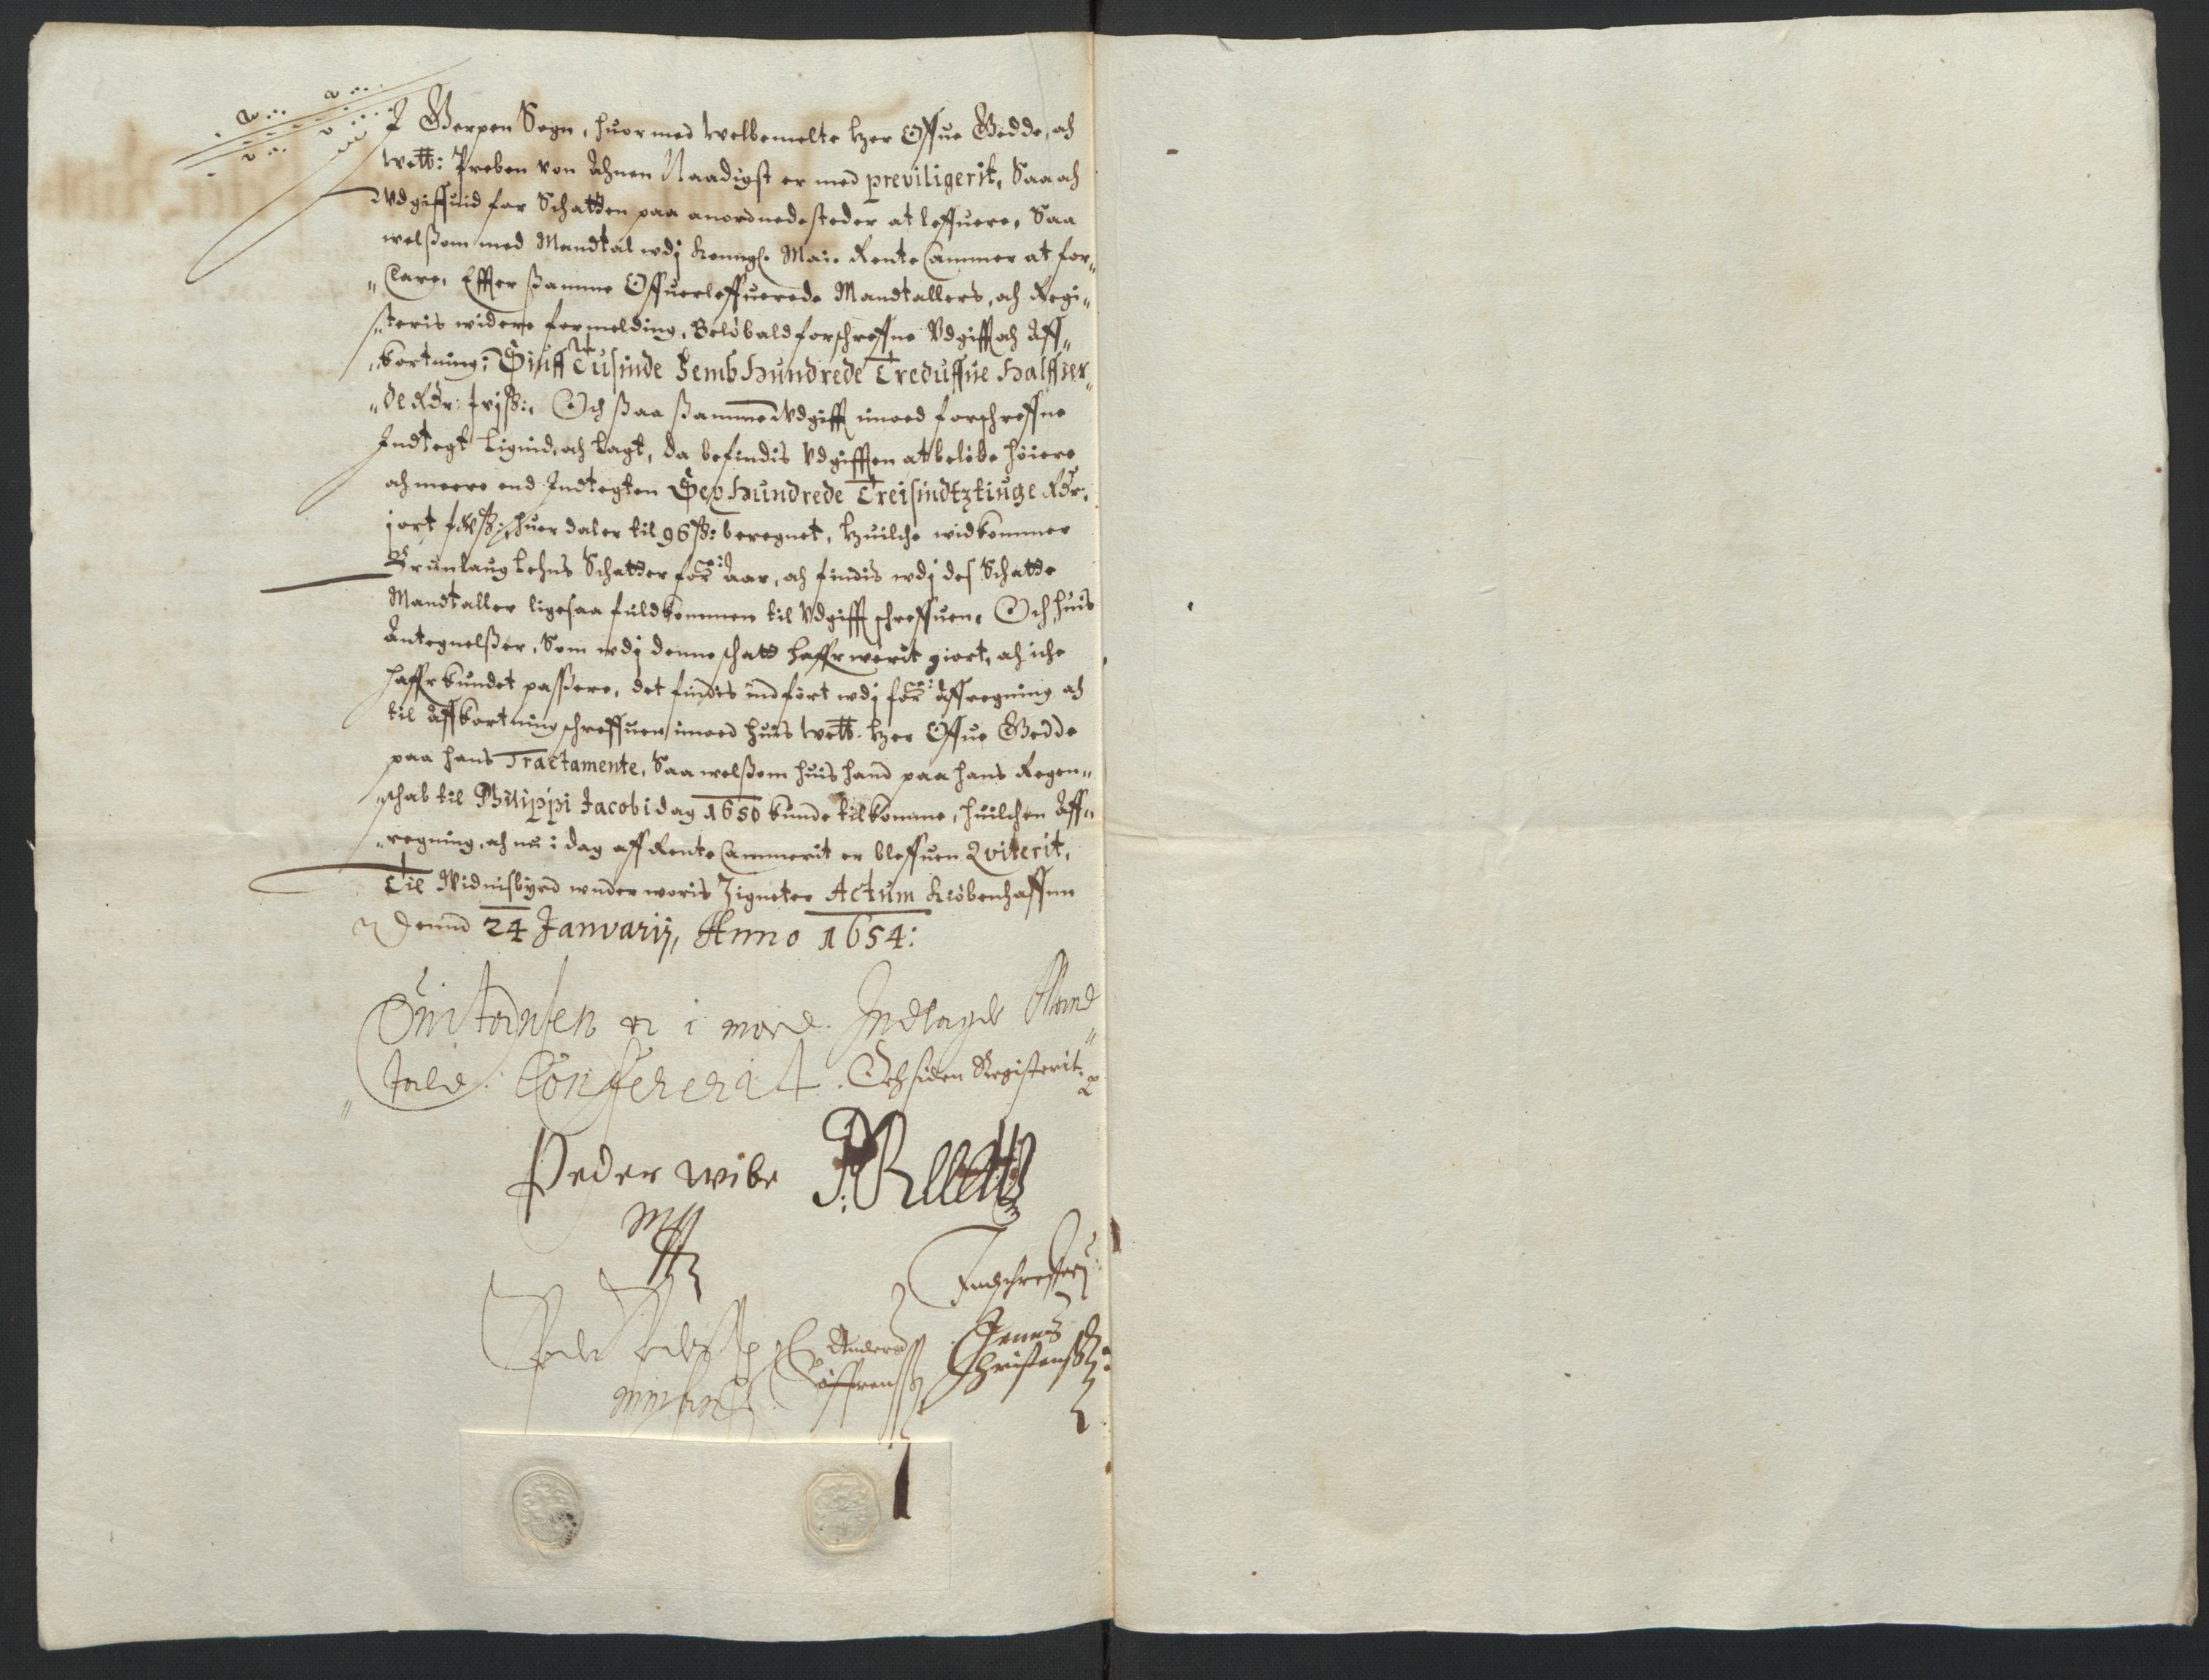 J Gierpen Sogn, huormed Welbemelte Her Offue Giedde, och
Welb: Preben von Ahnen Naadigst er med previligerit, Saa och
Udgiffuid for Schatten paa anordnede steder at leffuere, Saa
welsom med Mandtal udj Kongl. Mai. Rente Cammer at for„
„Clare, Effter ßamme Offuerleffuerede Mandtallers, och Regi„
„steris widere formelding, Beløb ald forschreffne Udgifft och Aff„
„kortning: Siuff Tusinde Femb Hundrede Treduffue Halffier„
„de Rdr: Och ßaa ßamme Udgifft imoed forschreffne
Indtegt Lignid, och Lagt, da befindis Udgifften at beløbe høiere
och meere end Indtegten Sex Hundrede Treisindtztiuge Rdr:
j ort huer daler til 96 ß: beregnet, Huilche widkommer
Brunlaug Lehns Schatter for: Aar, och findis udj des Schatte
Mandtaller ligesaa fuldkommen til Udgifft schreffuen. Och huis
Antegnelßer, Som udj denne schatt haffr werit giort, och iche
haffr kundet passere, det findis indført udj for: Affregning och
til Affkortning schreffuen imoed huis Welb. Her Offue Giedde
paa hans Tractamente, Saa welsom huis hand paa hans Regen„
„schab til Philippi Jacobi dag 1650 kunde tilkomme, huilchen Aff„
„regning, och nu i dag aff Rente Cammerit er bleffuen Qviterit,
Til Vidnisbyrd under woris Zigneter Actum Kiøbenhaffnn
Dennd 24 Januarij, Anno 1654:
Quitansen er i moed Indlagde Mand
„tald Confererit. Och siden Registerit
Peder Wibe
Indschreffuen
Anders Jenns
Christensøn